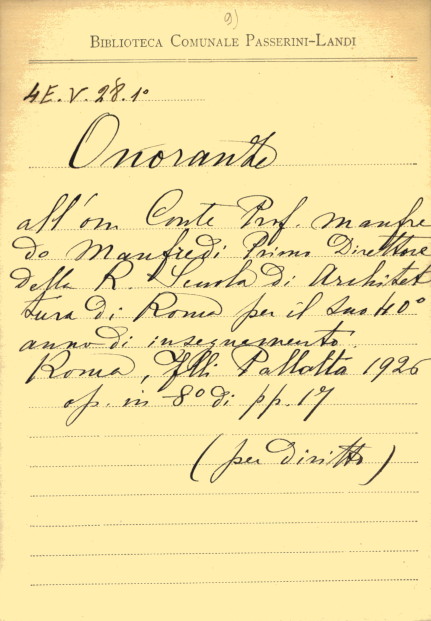 9)
BIBLIOTECA COMUNALE PASSERINI-LANDI
4E.V.28.1º
Onoranze
all'on Conte Prof. Manfre
do Manfredi Primo Direttore
della R. Scuola di Architet
tura di Roma per il suo 40º
anno di insegnamento.
Roma, Flli Pallotta 1926
op. in 8º di pp. 17
(per diritto)